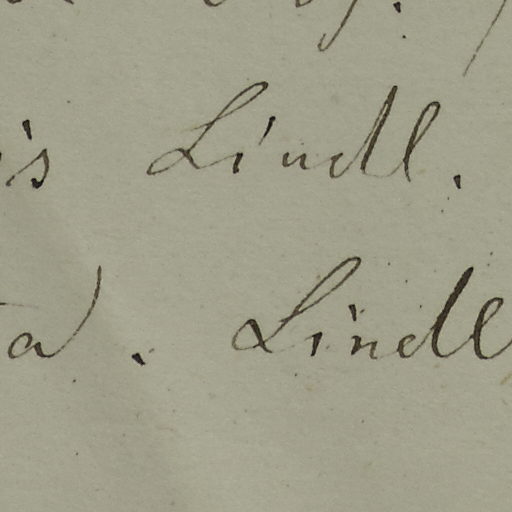 is Lindl.
a. Lindl